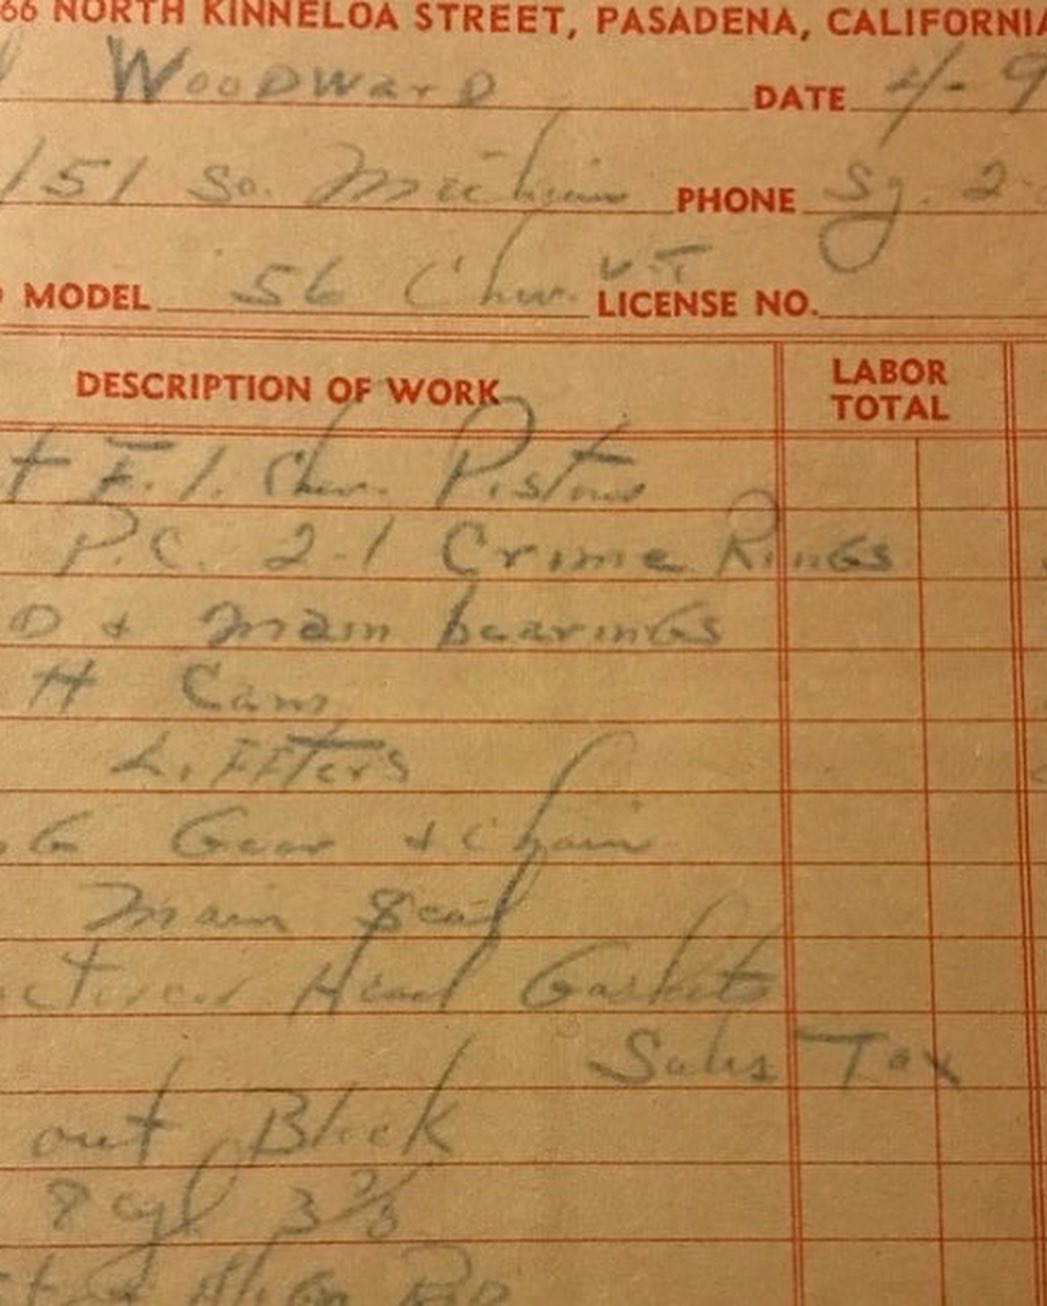 66 NORTH KINNELOA STREET, PASADENA, CALIFORNIA
WOODWARD DATE 4-9
151 So. Michigan PHONE Sy. 2-
MODEL 56 Chev. V-T LICENSE NO.
DESCRIPTION OF WORK LABOR TOTAL
t F.I. Chev. Pistons
P.C. 2-1 Crime Rings
D + main bearings
H Cam
Liffters
G Gear + Chain
Main Seal
Head Gaskets
Sales Tax
out Block
8 cyl 3 7/8
Align Rod